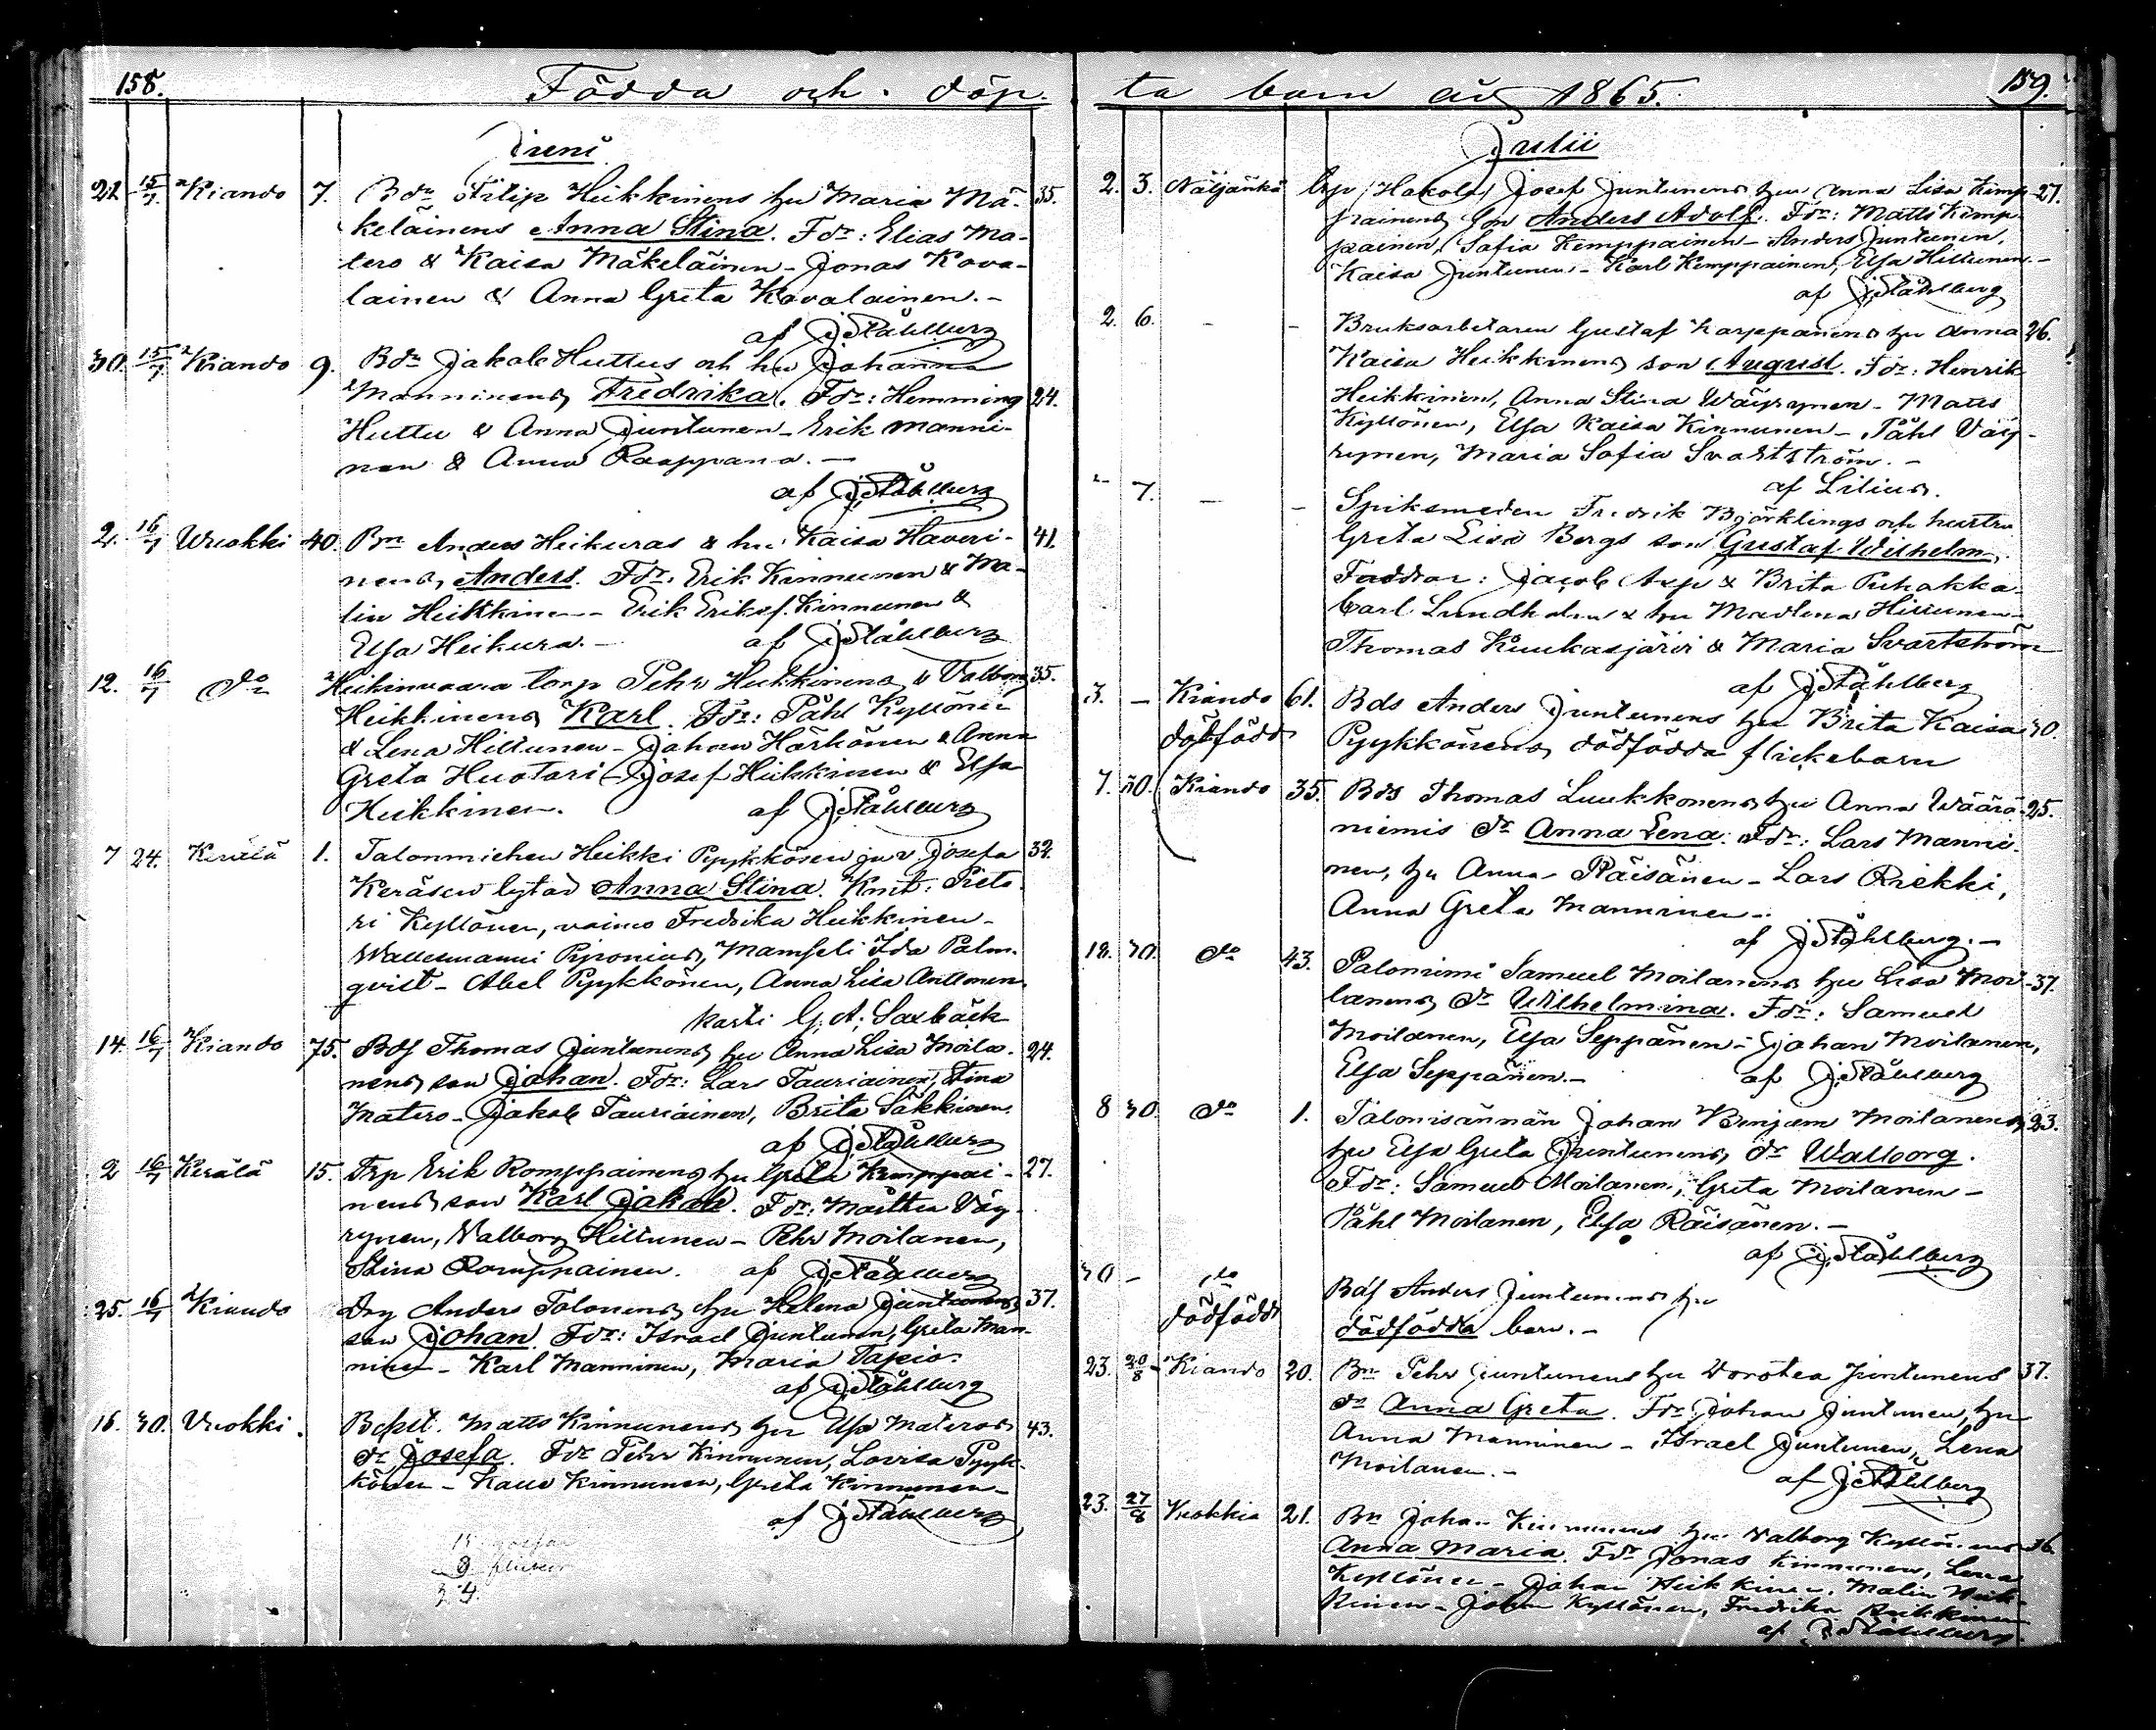 158.
Födda och döp
Juni
22 15/7 Kiando 7. Bdn Filip Heikkinens hu Maria Mä- 35.
keläinens Anna Stina. Fdr: Elias Ma-
tero & Kaisa Mäkeläinen - Jonas Kova-
lainen & Anna Greta Kovalainen. -
af J. Ståhlberg
30. 15/7 Kiando 9. Bdn Jakob Huttus och hu Johanna
Manninens Fredrika. Fdr: Hemming 24.
Huttu & Anna Juntunen - Erik Manni-
nen & Anna Raappana. -
af J. Ståhlberg
2. 16/7 Wuokki 40. Bn Anders Heikuras & hu Kaisa Haveri- 41.
nens Anders. Fdr: Erik Kinnunen & Ma-
lin Heikkinen - Erik Eriksf. Kinnunen &
Elsa Heikura. - af J. Ståhlberg
12. 16/7 do Heikinvaara torp Pehr Heikkinens & Valborg 35.
Heikkinens Karl. Fdr: Påhl Kyllönen
& Lena Hiltunen - Johan Härkönen & Anna
Greta Huotari - Josef Heikkinen & Elsa
Heikkinen. af J. Ståhlberg
7 24. Kerälä 1. Talonmiehen Heikki Pyykkösen ja v. Josefa 32.
Keräsen lytär Anna Stina. Kmt: Piete-
ri Kyllönen, vaimo Fredrika Heikkinen -
Wallesmanni Pyronius, Mamseli Ida Palm-
qvist - Abel Pyykkönen, Anna Lisa Anttonen
kasti G. A. Saxbäck
14. 16/7 Kiando 75. Bdf Thomas Juntunens hu Anna Lisa Moila- 24.
nens son Johan. Fdr: Lars Tauriainen, Stina
Matero - Jakob Tauriainen, Brita Säkkinen.
af J. Ståhlberg
2 16/7 Kerälä 15. Trp Erik Romppainens hu Greta Kemppai- 27.
nens son Karl Jakob. Fdr: Mattheu Väy-
rynen, Valborg Hiltunen - Pehr Moilanen,
Stina Romppainen. af J. Ståhlberg
25. 16/7 Kiando Drg Anders Tolonens hu Helena Juntunens 37.
son Johan. Fdr: Israel Juntunen, Greta Man-
ninen - Karl Manninen, Maria Tapio.
af J. Ståhlberg
16. 30. Vuokki. Matts Kinnunens hu Elsa Materos 43.
dr Josefa. Fdr Pehr Kinnunen, Lovisa Pyyk-
könen - Kalle Kinnunen, Greta Kinnunen -
af J. Ståhlberg
15 gossar
9 flickor
24.
159.
ta barn år 1865.
Julii
2. 3. Näljänkä Trp (Hakola) Josef Juntunens hu Anna Lisa Kemp- 27.
painens son Anders Adolf. Fdr: Matts Kemp-
painen, Sofia Kemppainen - Anders Juntunen,
Kaisa Juntunen - Karl Kemppainen, Elsa Hiltunen. -
af J. Ståhlberg
2. 6. - - Bruksarbetaren Gustaf Karppanens hu Anna 26.
Kaisa Heikkinens son August. Fdr: Henrik
Heikkinen, Anna Stina Wäyrynen - Matts
Kyllönen, Elsa Kaisa Kinnunen - Påhl Väy-
rynen, Maria Sofia Svartström. -
af Lilius.
" 7. - - Spiksmeden Fredrik Björklings och hustru
Greta Lisa Bergs son Gustaf Wilhelm,
Faddrar: Jacob Asp & Brita Puhakka-
Carl Lundholm & hu Madlena Hiltunen -
Thomas Kuukasjärvi & Maria Svartström
af J. Ståhlberg
3. - Kiando 61. Bds Anders Juntunens hu Brita Kaisa 30.
dödfödd Pyykkönens dödfödda flickebarn
7. 30. Kiando 35. Bds Thomas Luukkonens hu Anna Wäärä- 25.
niemis dr Anna Lena. Fdr: Lars Manni-
nen, hu Anna Räisänen - Lars Riekki,
Anna Greta Manninen -
af J. Ståhlberg. -
18. 30. do 43. Paloniemi Samuel Moilanens hu Lisa Moi- 37.
lanens dr Wilhelmina. Fdr: Samuel
Moilanen, Elsa Seppänen - Johan Moilanen,
Elsa Seppänen. - af J. Ståhlberg
8 30. do 1. Talonisännän Johan Benjam Moilanens 23.
hu Elsa Greta Juntunens dr Walborg.
Fdr: Samuel Moilanen, Greta Moilanen -
Påhl Moilanen, Elsa Räisänen. -
af J. Ståhlberg
30 - do Bdf Anders Juntunens hu
dödfödd dödfödda barn. -
23. 20/8 Kiando 20. Bn Pehr Juntunens hu Dorotea Juntunens 37.
dr Anna Greta. Fdr: Johan Juntunen, hu
Anna Manninen - Israel Juntunen, Lena
Moilanen. - af J. Ståhlberg
23. 27/8 Vuokki 21. Bn Johan Kinnunens hu Valborg Kyllönens 36.
Anna Maria. Fdr Jonas Kinnunen, Lena
Kyllönen - Johan Heikkinen, Malin Heik-
kinen - Johan Kyllönen, Fredrika Heikkinen
af J. Ståhlberg.